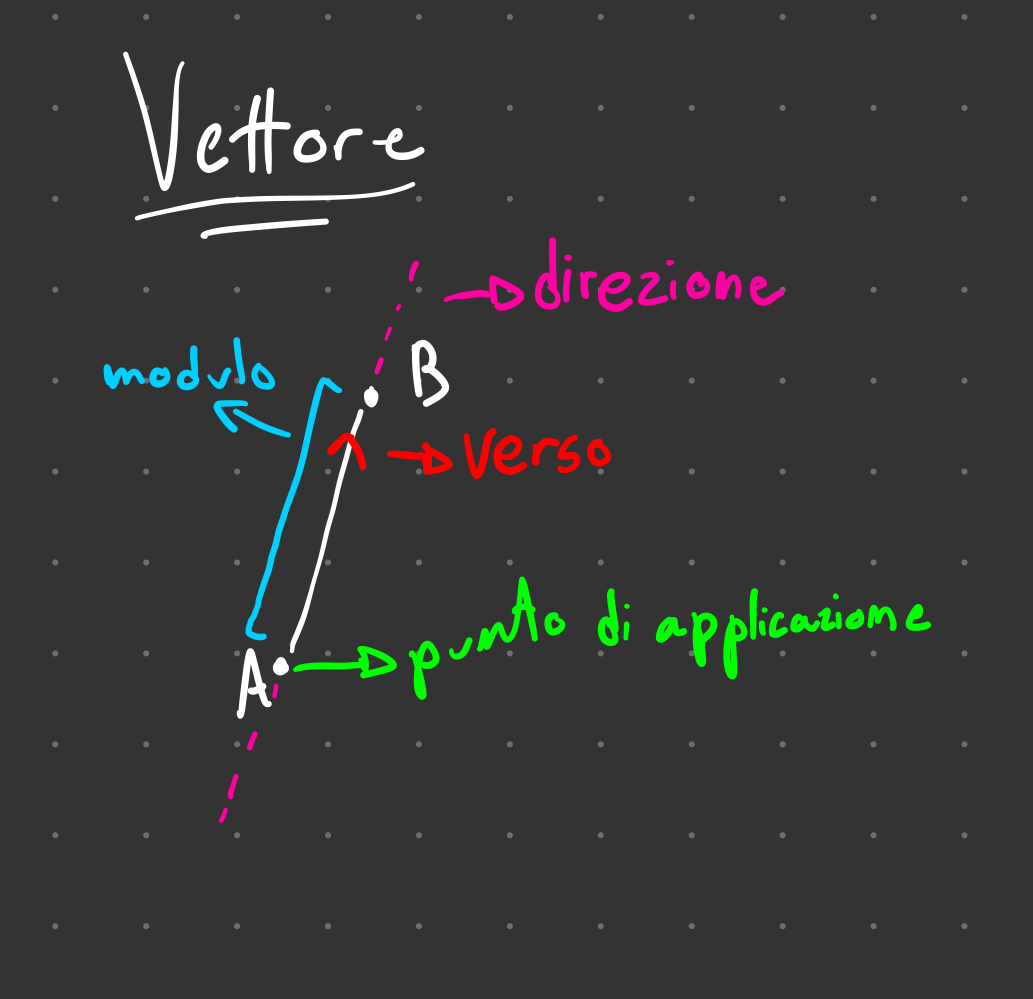 Vettore
direzione
B
modulo
verso
punto di applicazione
A